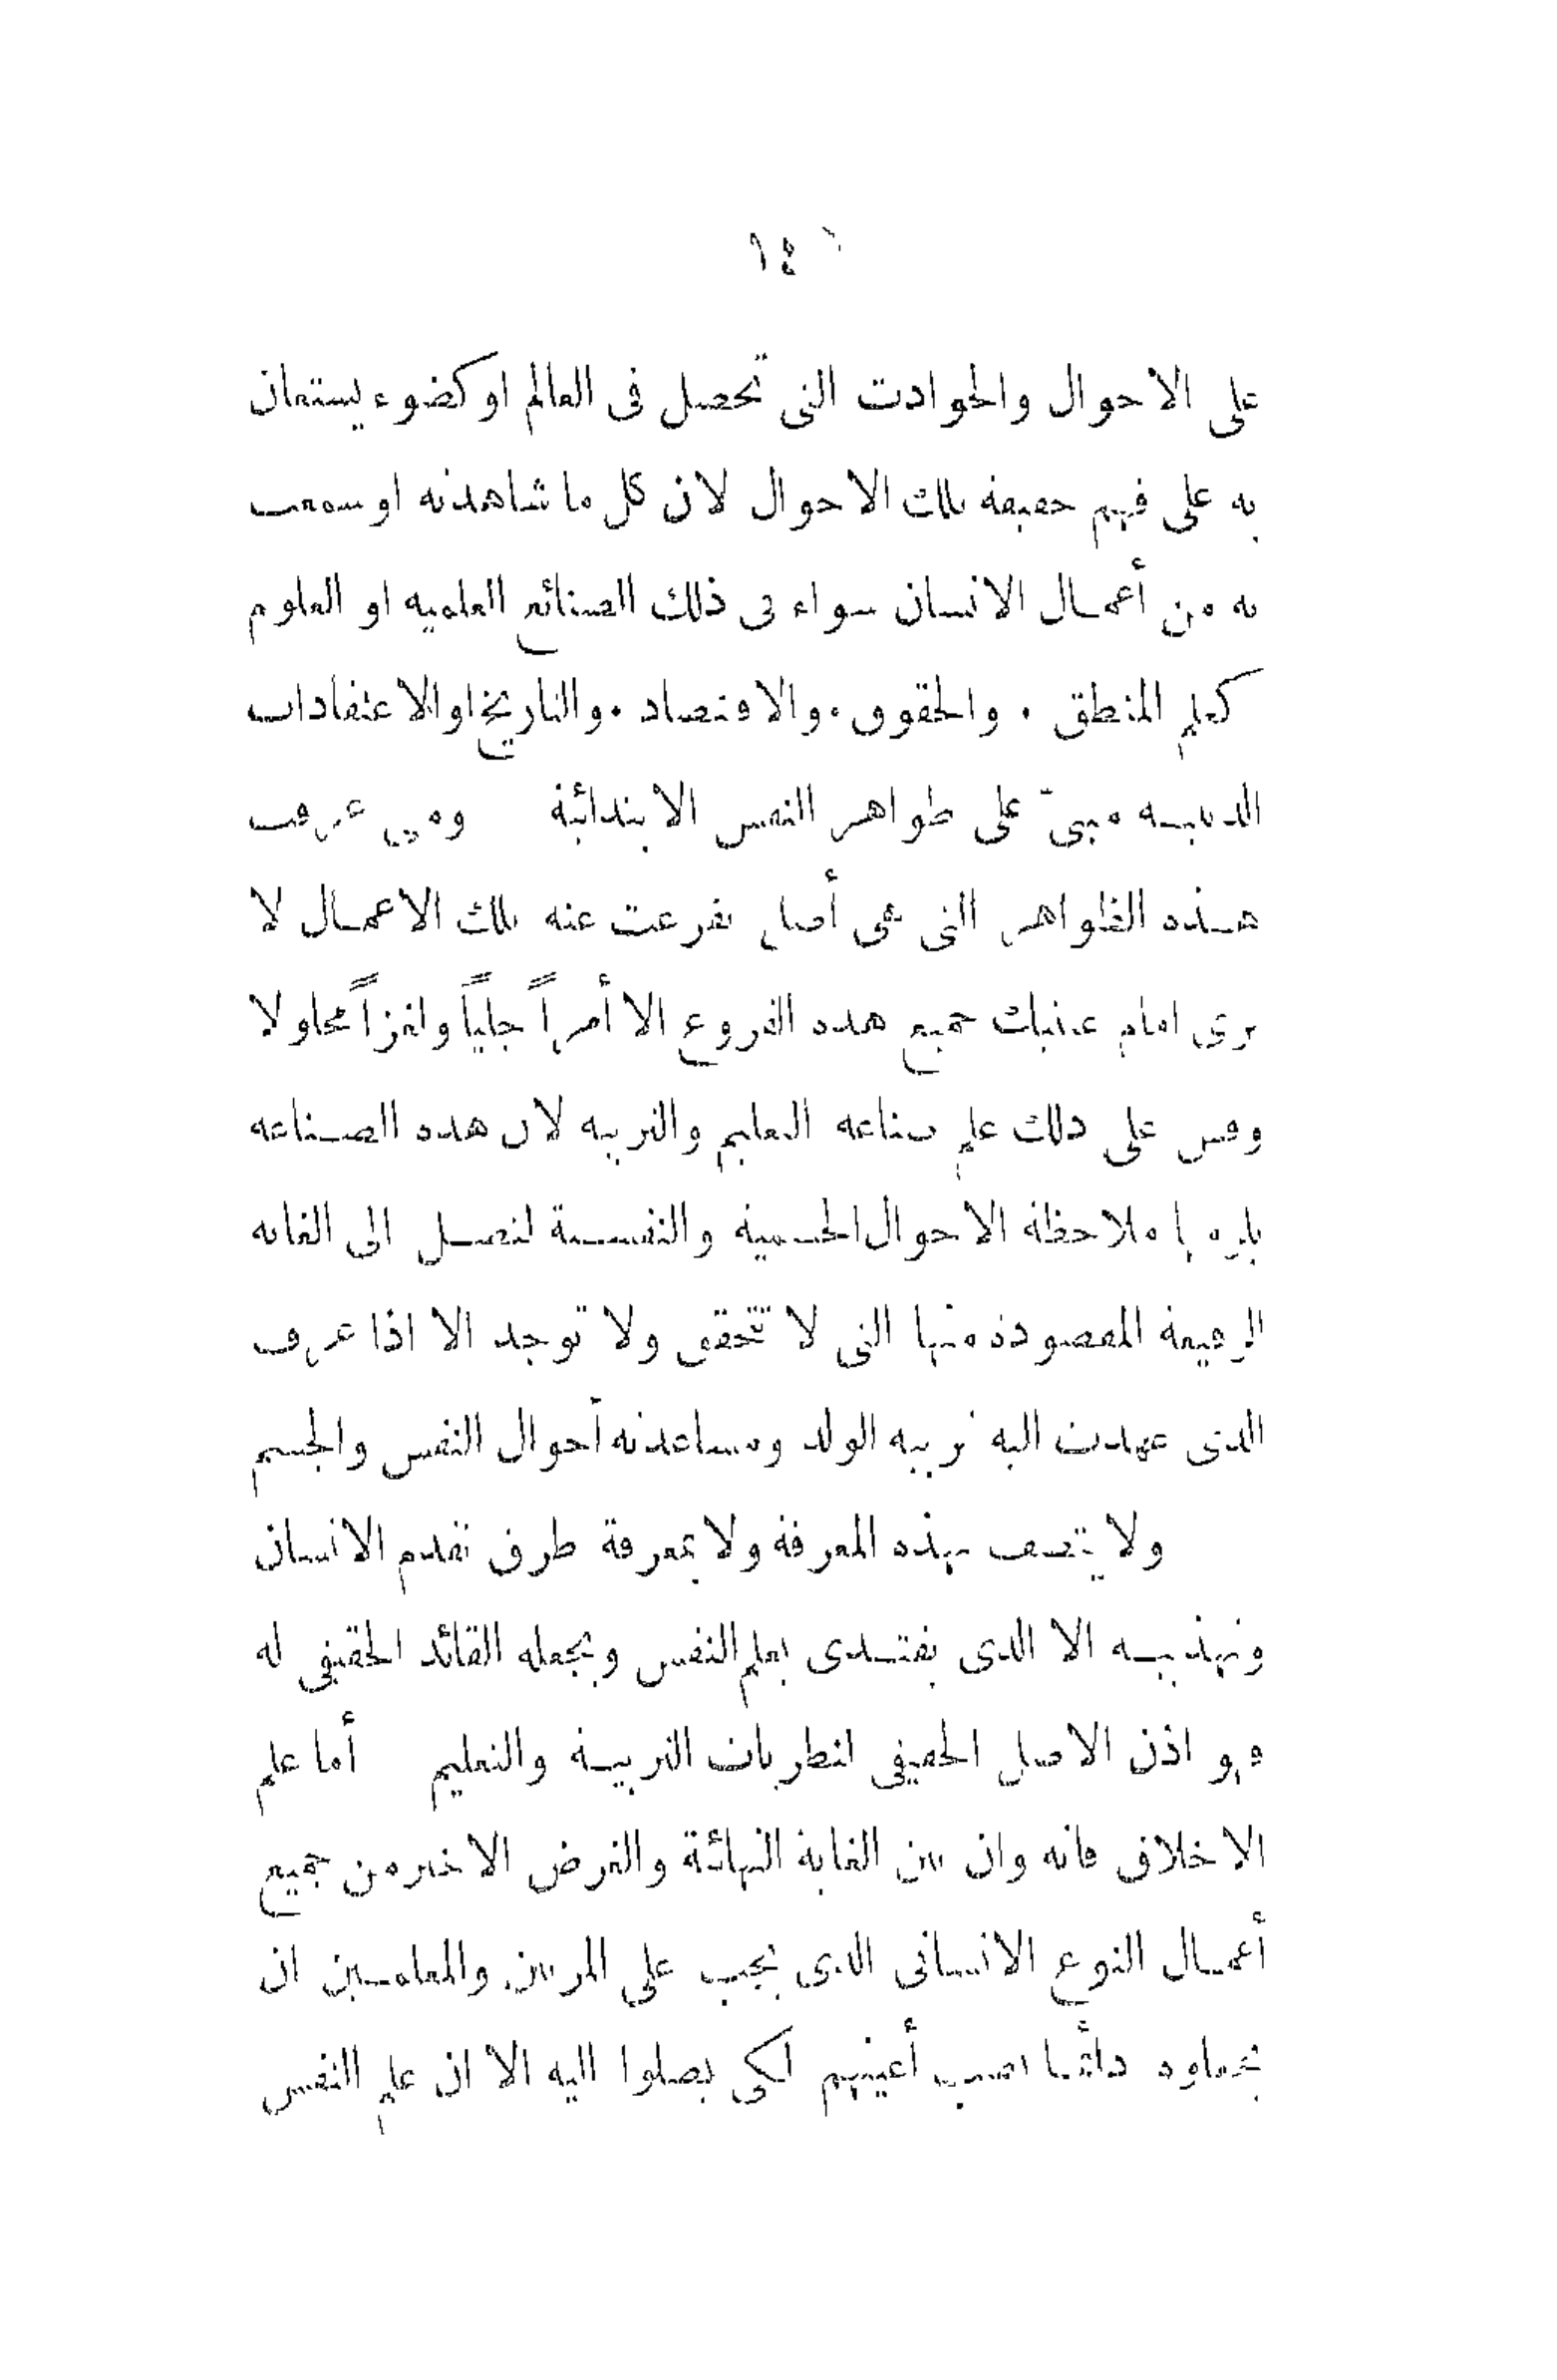 ١٤
على الاحوال والحوادث التى تحصل فى العالم او كضوء يستعان
به على فهم حقيقة تلك الاحوال لان كل ما شاهدته او سمعت
به من أعمال الانسان سواء فى ذلك الصنائع العلمية او العلوم
كعلم المنطق . والحقوق . والاقتصاد . والتاريخ او الاعتقادات
الدينية مبنىّ على ظواهر النفس الابتدائية ومتى عرفت
هذه الظواهر التى هى أصل تفرعت عنه تلك الاعمال لا
ترى امام عينيك جميع هذه الفروع الا أمراً جلياً ولغزاً محلولا
وقس على ذلك علم صناعة التعليم والتربية لان هذه الصناعة
يلزمها ملاحظة الاحوال الجسمية والنفسية لتصل الى الغاية
الرفيعة المقصودة منها التى لا تتحقق ولا توجد الا اذا عرف
الذى عهدت اليه تربية الولد ومساعدته أحوال النفس والجسم
ولا يتصف بهذه المعرفة ولا بمعرفة طرق تقدم الانسان
وتهذيبه الا الذى يقتدى بعلم النفس ويجعله القائد الحقيقى له
فهو اذن الاصل الحقيقى لنظريات التربية والتعليم أما علم
الاخلاق فانه وان بين الغاية النهائة والغرض الاخير من جميع
أعمال النوع الانسانى الذى يجب على المربين والمعلمين ان
يجعلوه دائما نصب أعينهم لكى يصلوا اليه الا ان علم النفس